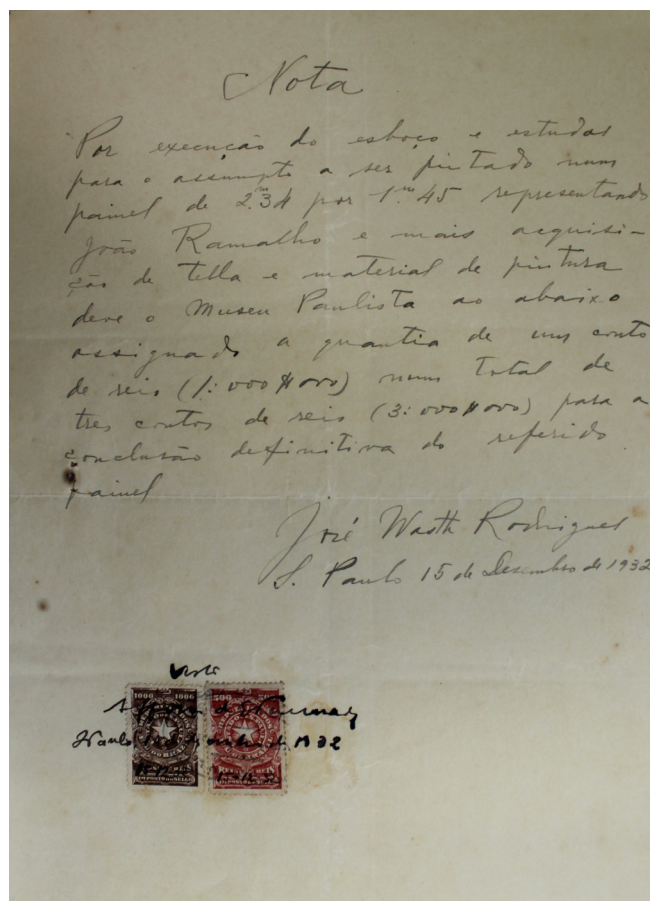 Nota
Por execução do esboço e estudos
para o assumpto a ser pintado num
painel de 2.m34 por 1.m45 representando
João Ramalho e mais acquisi-
ção de tella e material de pintura
deve o Museu Paulista ao abaixo
assignado a quantia de um conto
de reis (1:000$000) num total de
tres contos de reis (3:000$000) para a
conclusão definitiva do referido
painel
José Wasth Rodrigues
S. Paulo 15 de Desembro de 1932
Visto
1000 1000
500
Affonso d'E Taunay
S Paulo de 1932